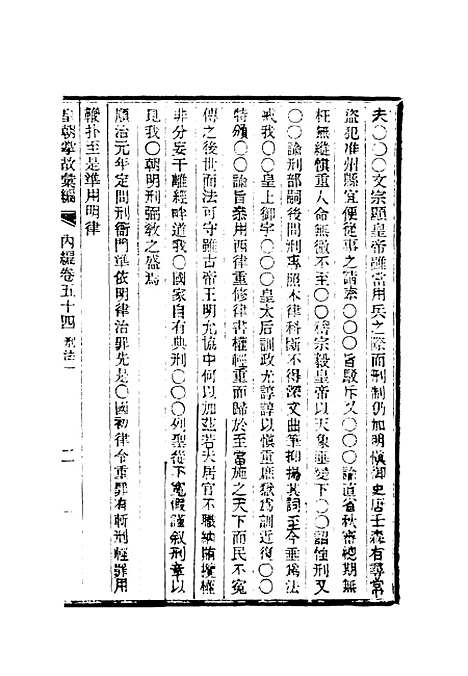 夫〇〇〇文宗顯皇帝雖當用兵之際而刑制仍加明慎御史唐壬森有尋常
盜犯准州縣宜便從事之請奏〇〇〇旨駁斥又〇〇〇諭直省秋審總期無
枉無縱慎重人命無微不至〇〇穆宗毅皇帝以天象垂變下〇〇詔恤刑又
〇〇諭刑部嗣後問刑專照本律科斷不得深文曲筆抑揚其詞至今垂為法
戒我〇〇皇上御宇〇〇〇皇太后訓政尤諄諄以慎重庶獄為訓近復〇〇
特頒〇〇諭旨叅用西律重修律書權輕重而歸於至當施之天下而民不冤
傳之後世而法可守雖古帝王明允協中何以加茲若夫居官不職納賄攬權
非分妄干離經畔道我〇國家自有典刑〇〇〇列聖從不寬假謹叙刑章以
見我〇朝明刑弼敎之盛焉
順治元年定問刑衙門準依明律治罪先是〇國初律令重罪有斬刑輕罪用
鞭扑至是準用明律
皇朝掌故彙編 內編卷五十四 刑法一 二